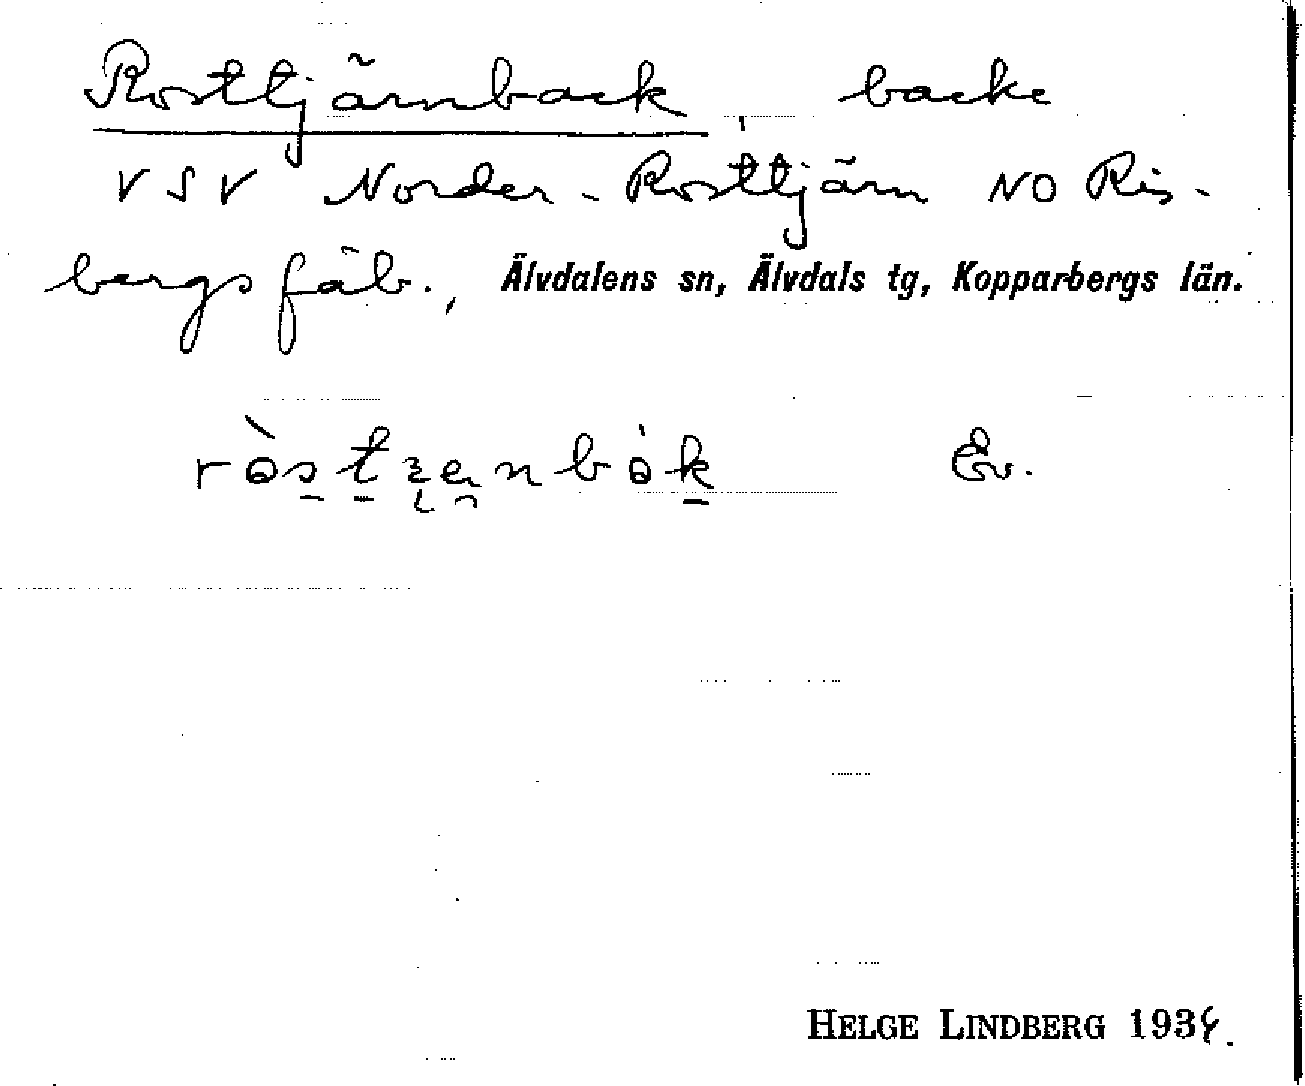 Rosttjärnback, backe
VSV Norder-Rosttjärn NO Ris-
bergs fäb., Älvdalens sn, Älvdals tg, Kopparbergs län.
Ev.
HELGE LINDBERG 1934.